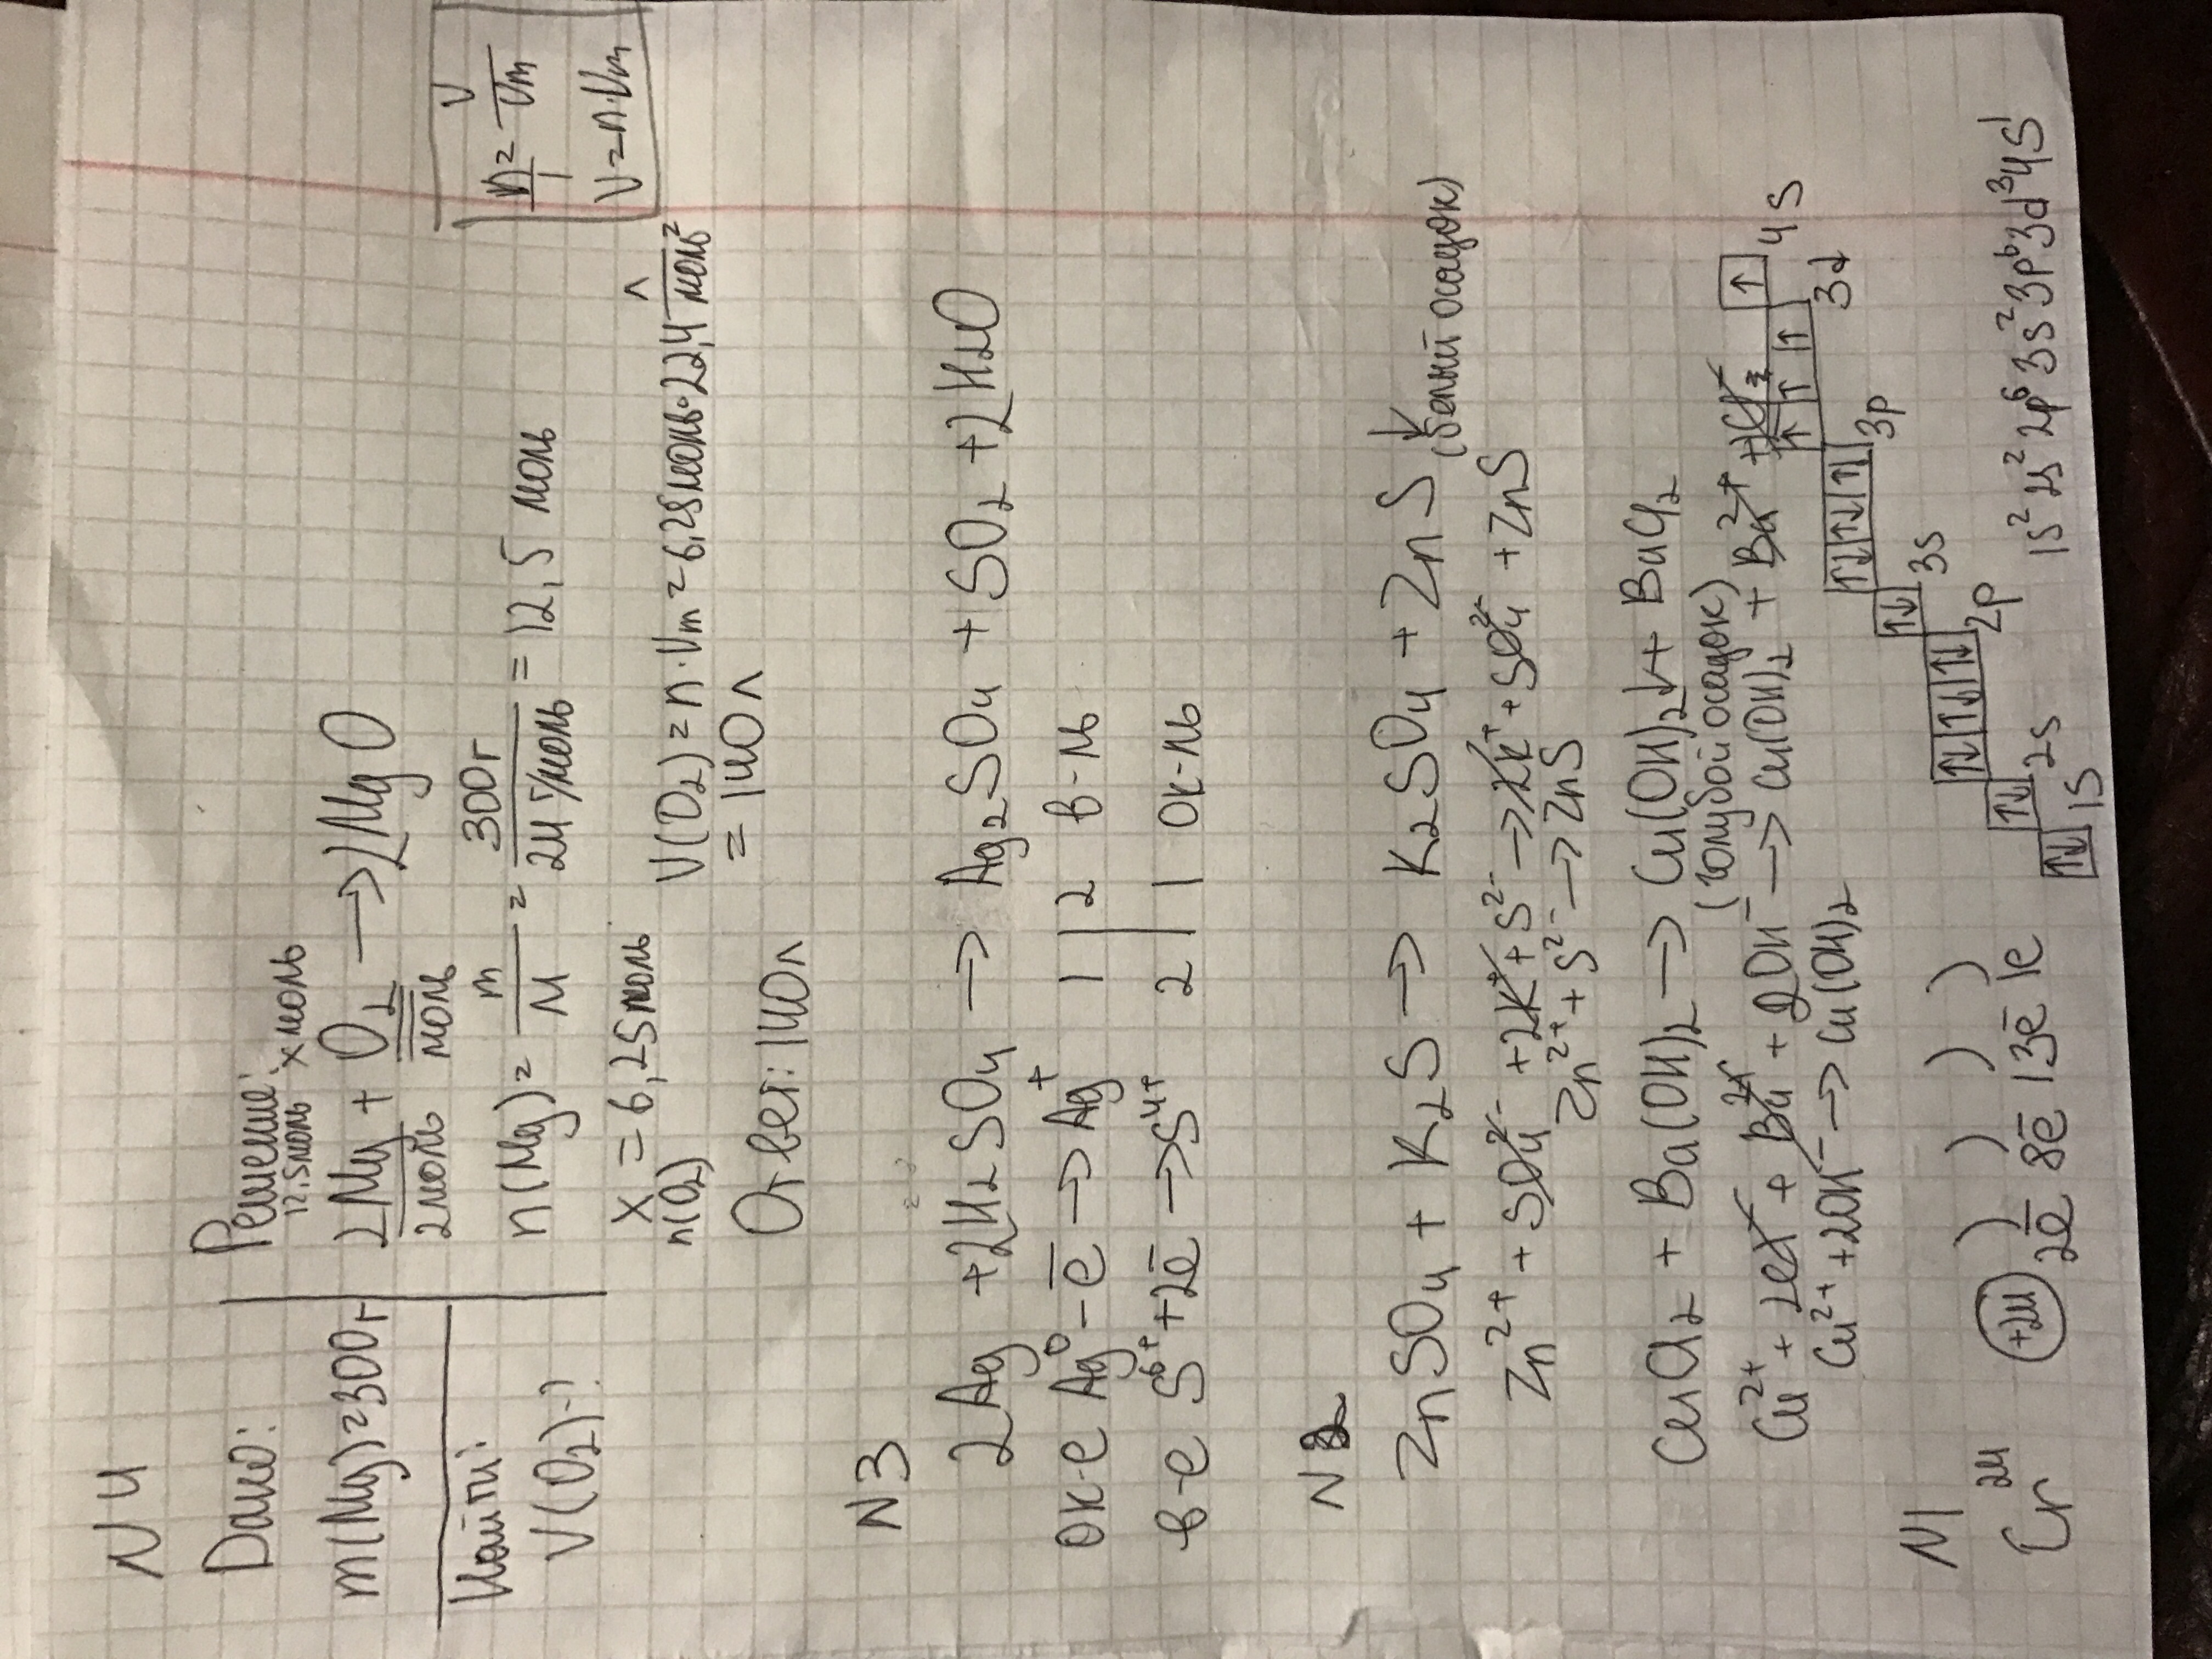 N4
Дано:
m(Mg)=300г
Найти:
V(O₂)-?
Решение:
12,5моль x моль
2Mg + O₂ → 2MgO
2моль моль
n(Mg) = m/M = 300г/24 г/моль = 12,5 моль
x = 6,25моль
n(O₂)
V(O₂) = n · Vm = 6,25моль · 22,4 л/моль =
= 140л
Ответ: 140л
n = V/Vm
V = n · Vm
N3
2Ag + 2H₂SO₄ → Ag₂SO₄ + 1SO₂ + 2H₂O
ок-е Ag⁰ - ē → Ag⁺ 1 | 2 в-ль
в-е S⁶⁺ + 2ē → S⁴⁺ 2 | 1 ок-ль
N2
ZnSO₄ + K₂S → K₂SO₄ + ZnS↓
(белый осадок)
Zn²⁺ + SO₄²⁻ + 2K⁺ + S²⁻ → 2K⁺ + SO₄²⁻ + ZnS
Zn²⁺ + S²⁻ → ZnS
CuCl₂ + Ba(OH)₂ → Cu(OH)₂↓ + BaCl₂
(голубой осадок)
Cu²⁺ + 2Cl⁻ + Ba²⁺ + 2OH⁻ → Cu(OH)₂ + Ba²⁺ +
Cu²⁺ + 2OH⁻ → Cu(OH)₂
N1
Cr²⁴ +24 ) ) ) )
2ē 8ē 13ē 1e
↑↓ ↑↓ ↑↓ ↑↓ ↑↓ ↑↓ ↑↓ ↑↓ ↑↓ ↑ ↑ ↑ ↑ ↑
1s 2s 2p 3s 3p 3d 4s
1s² 2s² 2p⁶ 3s² 3p⁶ 3d³ 4s¹